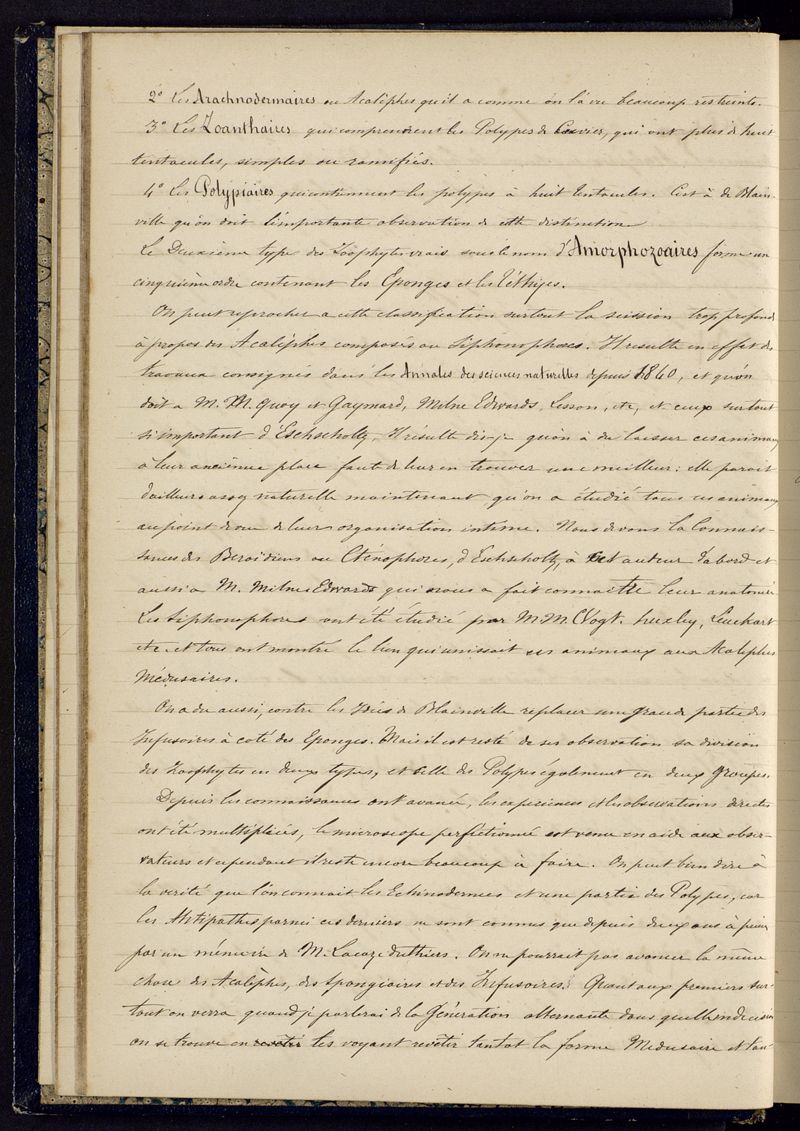 2° Les Arachnodermaires ou Acalèphes qu'il a comme on l'a vu beaucoup restreinte.
3° Les Zoanthaires qui comprennent les Polypes de Cuvier, qui ont plus de huit
tentacules, simples ou ramifiés.
4° Les Polypiaires qui contiennent les polypes à huit tentacules. C'est à de Blain-
ville qu'on doit l'importante observation de cette distinction
Le Deuxième type des Zoophytes vrais sous le nom d'Amorphozoaires forme un
cinquième ordre contenant les Eponges et les Téthyes.
On peut reprocher a cette classification surtout la scission trop profonde
à propos des Acalèphes composés ou Siphonophores. Il resulte en effet des
travaux consignés dans les Annales des sciences naturelles depuis 1840, et qu'on
doit a M. M. Quoy et Gaymard, Milne Edwards, Lesson, etc, et ceux surtout
si important d'Eschscholtz, Il résulte dis-je qu'on à du laisser ces animaux
à leur ancienne place faute de leur en trouver une meilleur: elle parait
d'ailleurs assez naturelle maintenant qu'on a étudié tous ces animaux
au point de vue de leur organisation interne. Nous devons la Connais-
sances des Beroïdiens ou Cténophores, d'Eschscholtz, à cet auteur d'abord et
aussi a M. Milne Edwards qui nous a fait connaitre leur anatomie
Les Siphonophores ont été étudié par M.M. C. Vogt. huxley, Leuckart
etc. et tous ont montré le lien qui unissait ces animaux aux Acalèphes
Médusaires.
On a du aussi, contre les Idées de Blainville replacer une grande partie des
Infusoires à coté des Eponges. Mais il est resté de ses observation sa division
des Zoophytes en deux types, et celle des Polypes également en deux groupes.
Depuis les connaissances ont avancé, les expériences et les observations directes
ont été multipliées, le microscope perfectionné est venu en aide aux obser-
vateurs et cependant il reste encore beaucoup à faire. On peut bien dire à
la verité que l'on connait les Echinodermes et une partie des Polypes, car
les Antipathes parmi ces derniers ne sont connus que depuis deux ans à peine
par un mémoire de M. Lacaze duthiers. On ne pourrait pas avancer la même
chose des Acalèphes, des Spongiaires et des Infusoires. Quant aux premiers sur-
tout on verra quand je parlerai de la Génération alternante dans quelle indecision
on se trouve en les voyant revêtir tantot la forme Medusaire et tan-